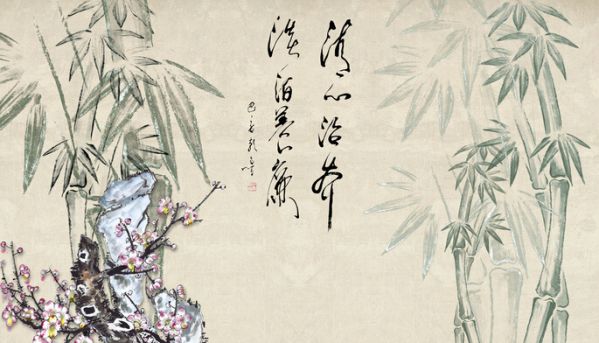 清心治本
淡泊养廉